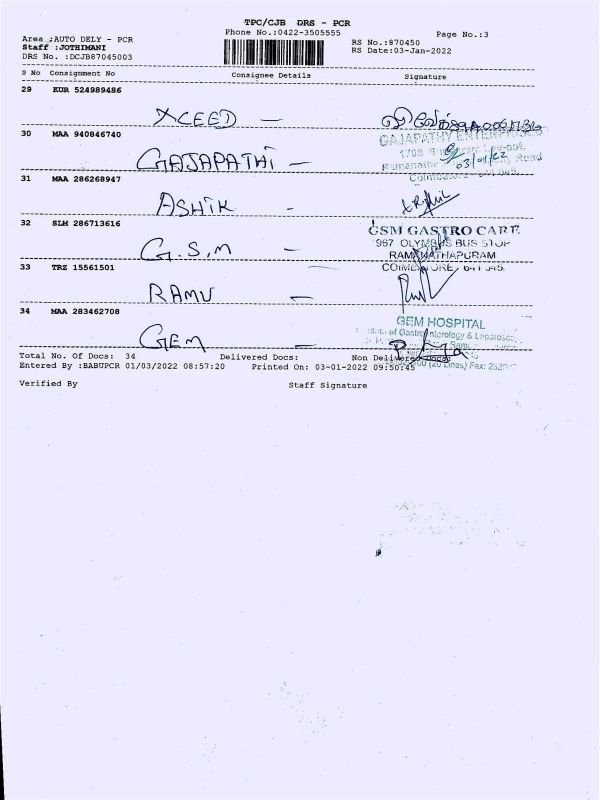 TPC/CJB DRS - PCR
Phone No.:0422-3505555
Page No.:3
Area :AUTO DELY - PCR
Staff :JOTHIMANI
DRS No. :DCJB87045003
RS No.:870450
RS Date:03-Jan-2022
S No Consignment No Consignee Details Signature
29 KUR 524989486
XCEED -
30 MAA 940846740
GAJAPATHY ENTERPRISES
1708
GAJAPATHI -
03/01/22
Road
31 MAA 286268947
ASHIK -
32 SLM 286713616
GSM GASTRO CARE
967 OLYMBUS BUS STOP
G.S.M -
RAMANATHAPURAM
33 TRZ 15561501
COIMBATORE, 641 045
RAMU -
34 MAA 283462708
GEM HOSPITAL
GEM -
Total No. Of Docs: 34 Delivered Docs: Non Delivered Docs:
Entered By :BABUPCR 01/03/2022 08:57:20 Printed On: 03-01-2022 09:50:45
Verified By Staff Signature